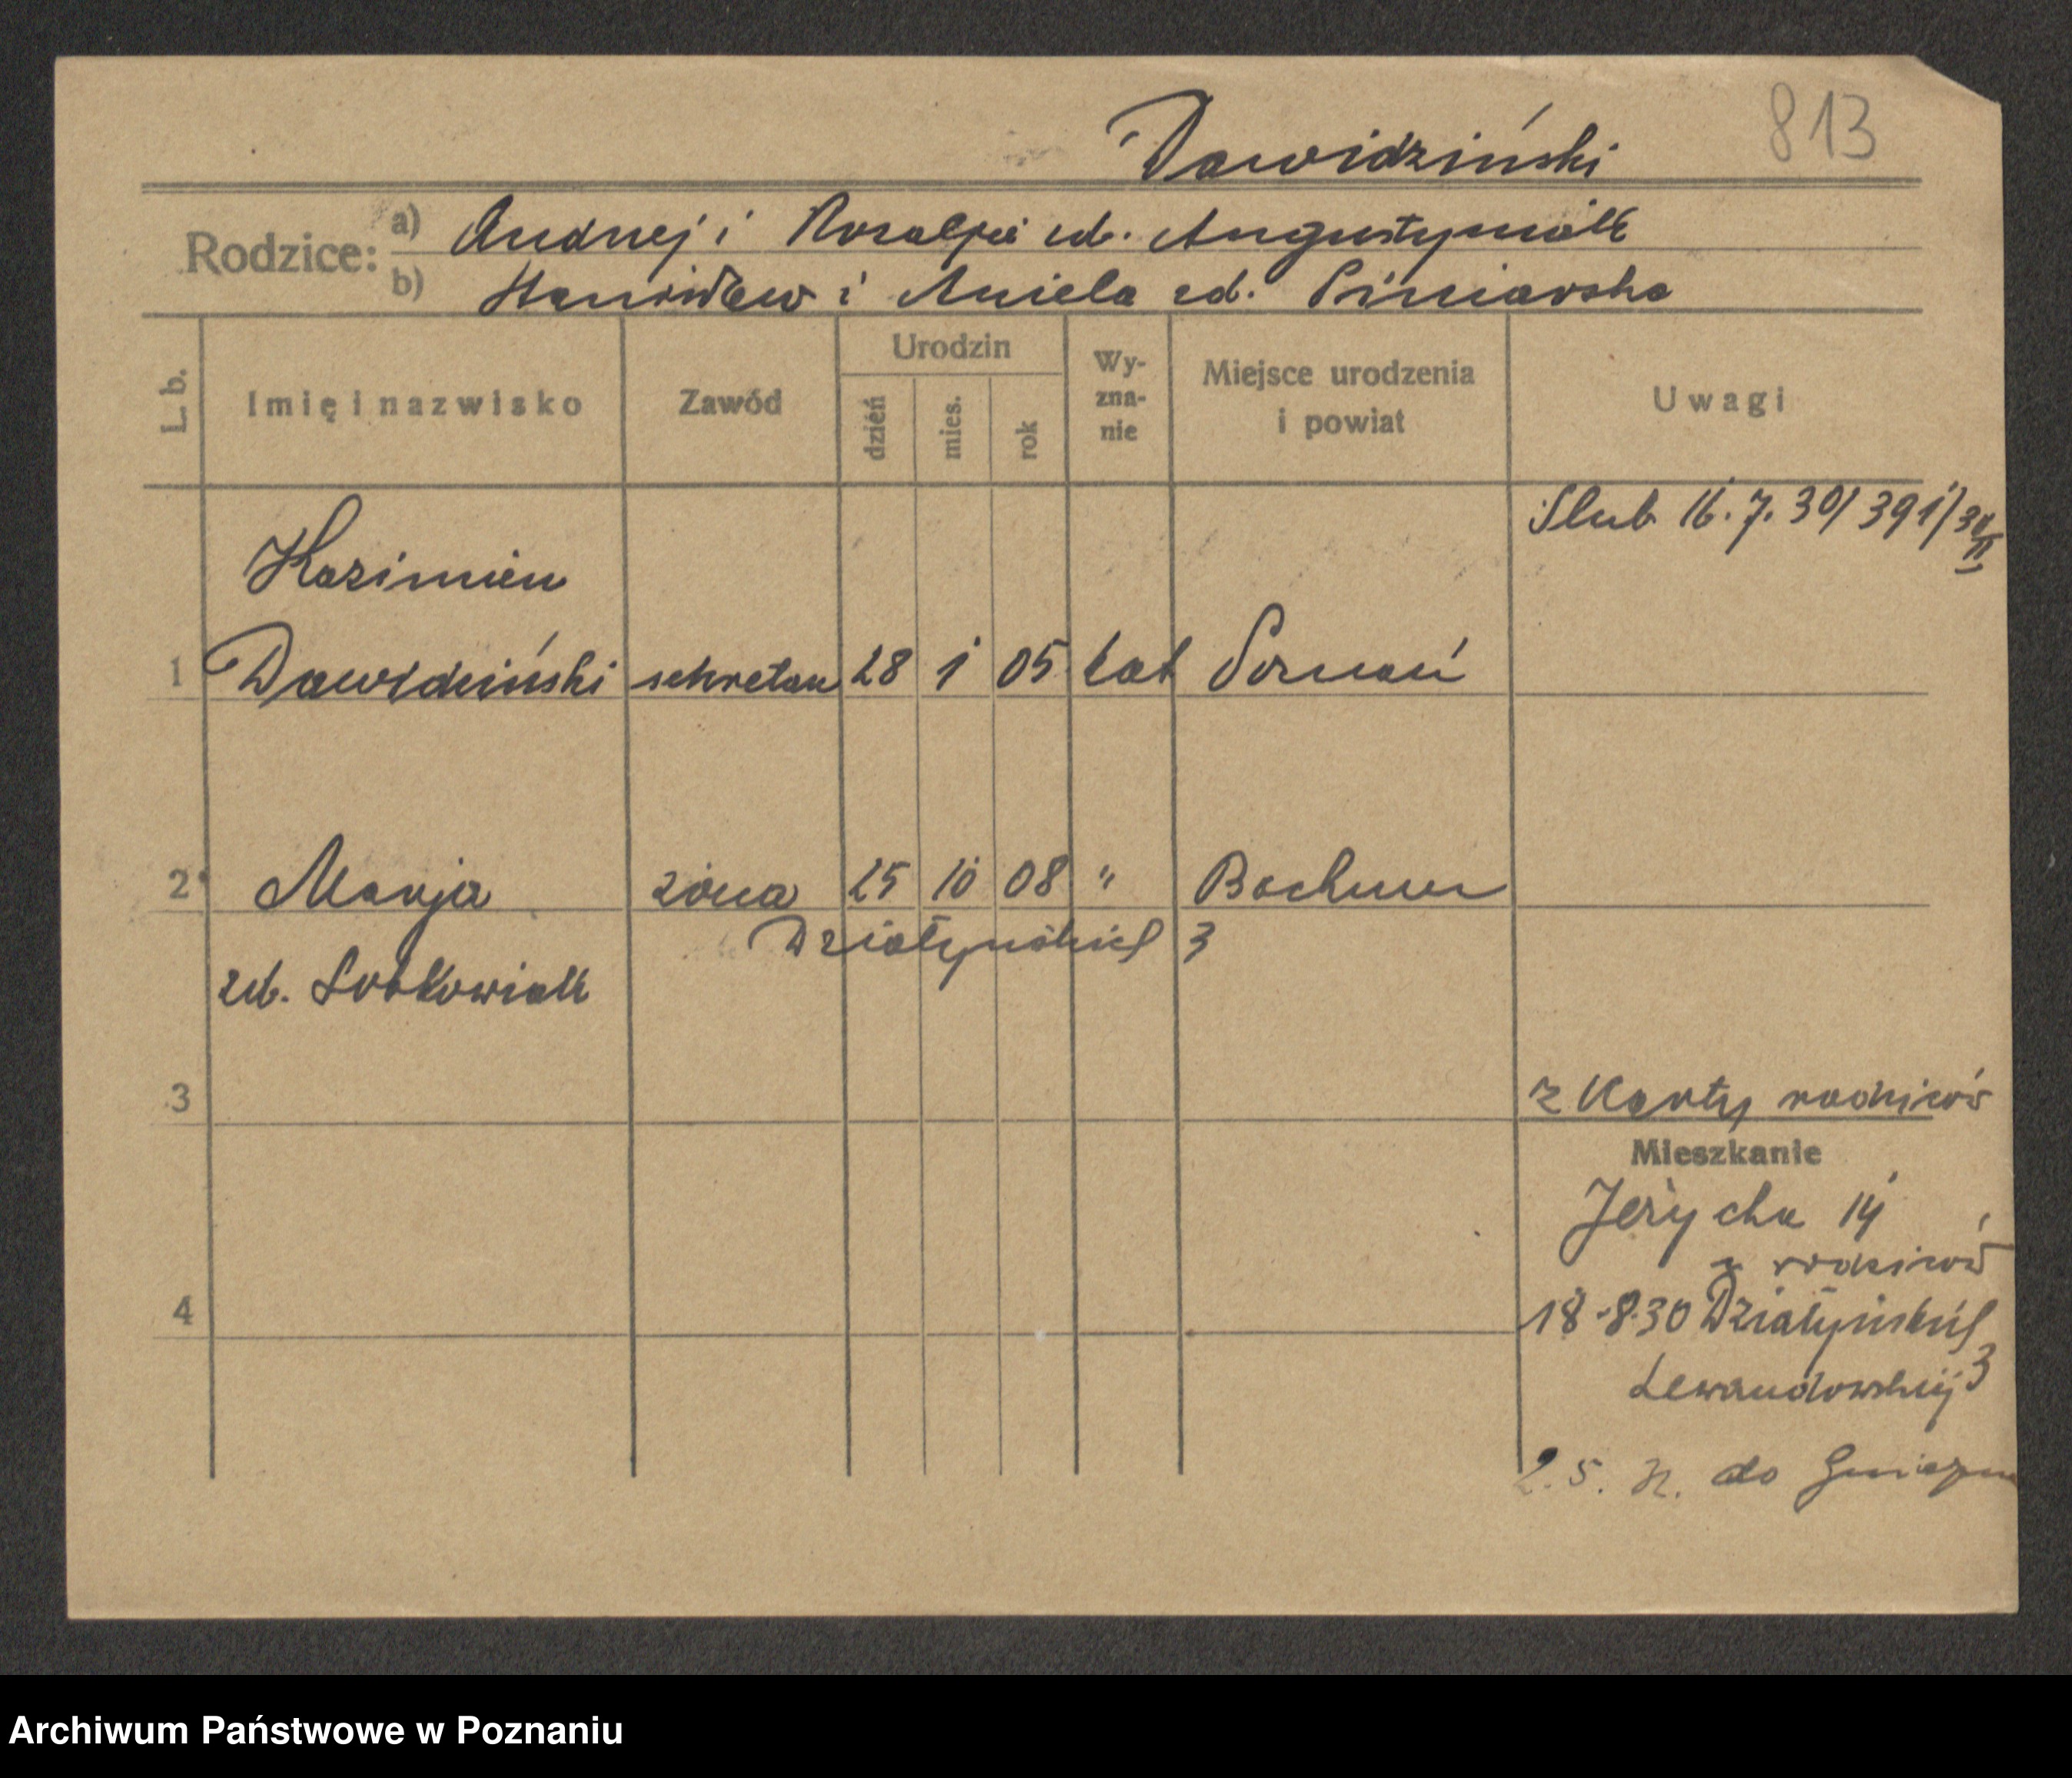 813
Dawidziński
Rodzice:
a) Andrzej i Rozalja zd. Augustyniak
b) Stanisław i Aniela zd. Piniarska
L. b.
Imię i nazwisko
Zawód
Urodzin
dzień
mies.
rok
Wy-
zna-
nie
Miejsce urodzenia
i powiat
Uwagi
Ślub 16. 7. 30/ 391/30
II
Kazimierz
1 Dawidziński sekretarz 28 1 05 kat Poznań
2 Marja żona 25 10 08 " Bochum
Działyńskich 3
zd. Sobkowiak
3
z Karty rodziców
Mieszkanie
Jeżycka 14
u rodziców
4
18.8.30 Działyńskich
Lewandowskiej 3
2. 5. do Gniezna
Archiwum Państwowe w Poznaniu